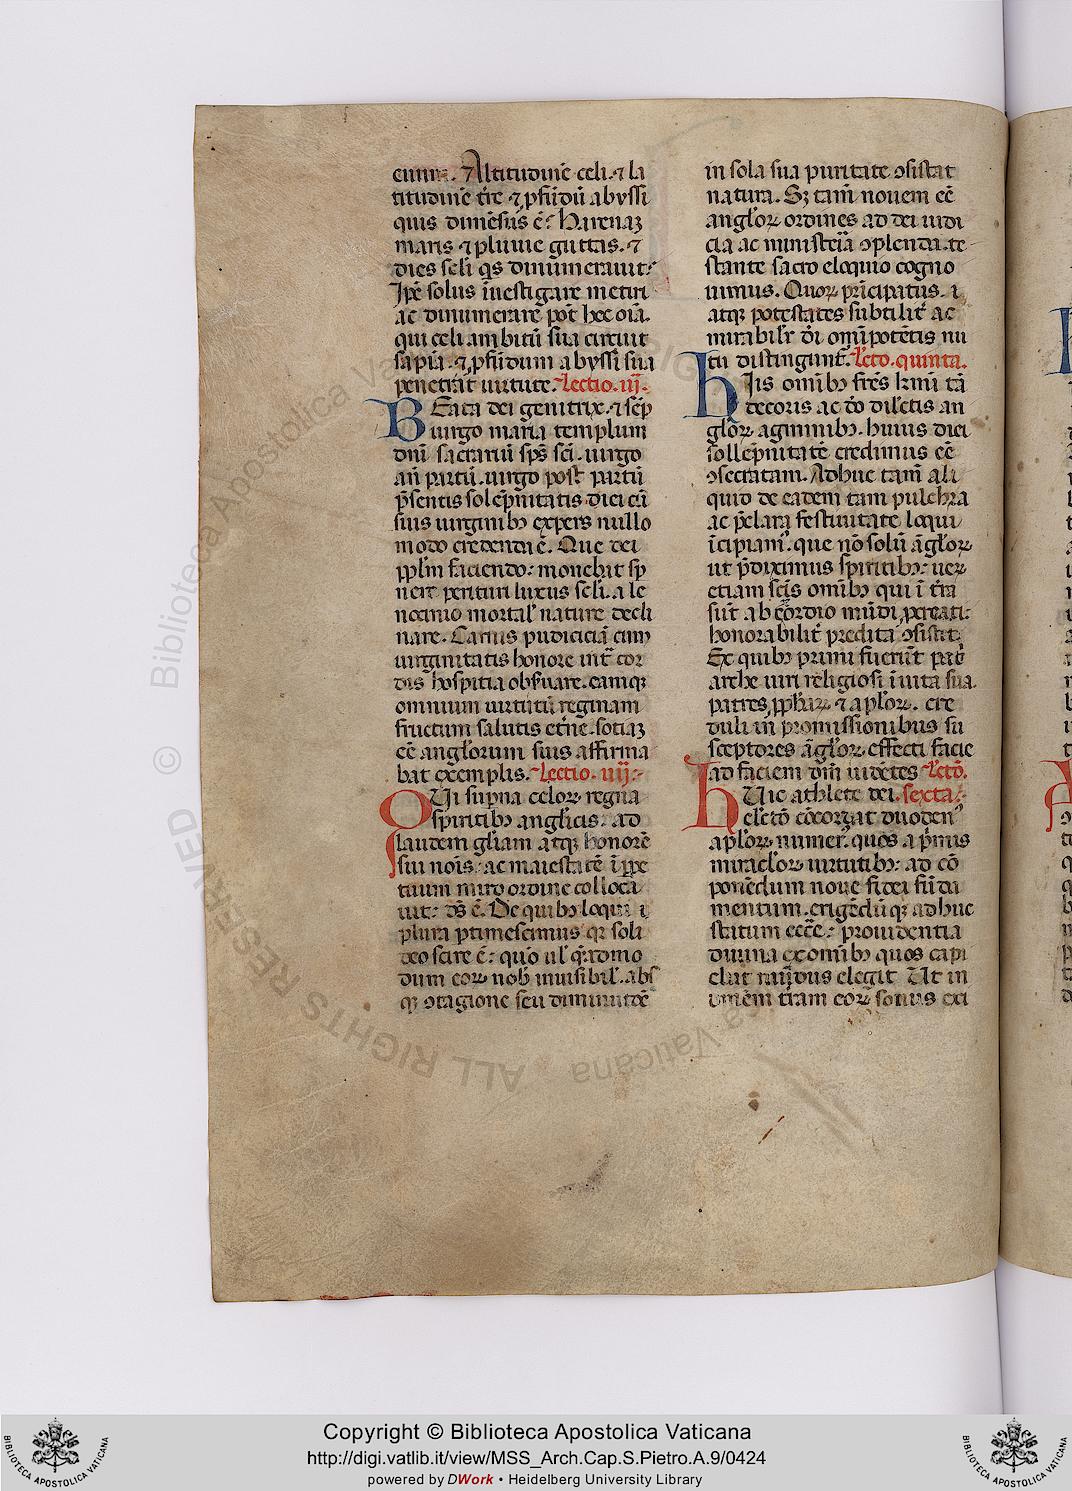 cunna. ⁊ Altitudinē celi. ⁊ la
titudinē t̄re ⁊ ꝓfūdū abyssi
quis dimēsus ē? Harenaꝫ
maris ⁊ pluuie guttas. ⁊
dies seli q̄s dinumerauit?
Ip̄e solus īuestigare metiri
ac dinumerare pōt hec oīa.
qui celi ambitū sua circuit
sapīa. ⁊ ꝓfūdum abyssi sua
penetrāt uirtute. Lectio. iij.
BEata dei genitrix. ⁊ sēꝑ
uirgo maria templum
dn̄i sacrariū sp̄s sc̄i. uirgo
an̄ partū. uirgo post partū
p̄sentis solēpnitatis diei cū
suis uirginibꝫ expers nullo
modo credenda ē. Que dei
pp̄lm faciendo: monebat sꝑ
nere perituri luxus seli. a le
nocinio mortal' nature decli
nare. Carnis pudiciciā cum
uirginitatis honore int̄ cor
dis hospitia obs̄uare. eamqꝫ
omnium uirtutū reginam
fructum salutis et̄ne. sotiaꝫ
eē angl̄orum suis affirma
bat exemplis. Lectio. iiij.
QUi sup̄na celoꝝ regna
spiritibꝫ angl̄icis: ad
laudem gl̄iam atqꝫ honorē
sui nōis: ac maiestatē ī ꝑpe
tuum miro ordine colloca
uit: ds̄ ē. De quibꝫ loqui ī
plura ꝑtimescimus qꝛ soli
deo scire ē: quo ul' q̄admo
dum eoꝝ nob̄ inuisibil'. absꝫ
qꝫ ɔtagione seu diminutōe
in sola sua puritate ɔsistat
natura. Sꝫ tam̄ nouem eē
angl̄oꝝ ordines ad dei iudi
cia ac ministeīa ɔplenda. te
stante sacro eloquio cogno
uimus. Quoꝝ pr̄incipatus. ī
atqꝫ potestates subtilit̄ ac
mirabilr̄ dei omīpotētis nu
tu distingunt̄. Lecto. quinta.
HIis omībꝫ fr̄es kmī tā
decoris ac dō dilc̄tis an
gl̄oꝝ agminibꝫ. huius diei
sollēpnitatē credimus eē
ɔsecratam. Adhuc tam̄ ali
quid de eadem tam pulchra
ac p̄clara festiuitate loqui
īcipiam'. que nō solū āgl̄oꝝ
ut p̄diximus spiritibꝫ: ueꝝ
etiam sc̄is omībꝫ qui ī t̄ra
sūt ab exordio mūdi ꝓcreati:
honorabilit̄ predita ɔsistit.
Ex quibꝫ primi fuerūt pat̄
arche uiri religiosi ī uita sua.
patres ꝓph̄aꝝ ⁊ apl̄oꝝ. cre
duli in promissionibus su
sceptores āgl̄oꝝ. effecti facie
ad faciem dn̄i uidētes Lectō.
HUic athlete dei. sexta.
elc̄tō cōcordat duoden'
apl̄oꝝ numer'. quos a p̄mus
miracl̄oꝝ uirtutibꝫ: ad cō
ponēdum noue fidei fūda
mentum. erigēdūqꝫ adhuc
statum ecc̄e: prouidentia
diuina ex omībꝫ quos capi
elegit Ut in
omēm t̄ram eoꝝ sonus exi
© Biblioteca Apostolica Vaticana ALL RIGHTS RESERVED
Copyright © Biblioteca Apostolica Vaticana
http://digi.vatlib.it/view/MSS_Arch.Cap.S.Pietro.A.9/0424
powered by DWork • Heidelberg University Library
BIBLIOTECA APOSTOLICA VATICANA
BIBLIOTECA APOSTOLICA VATICANA